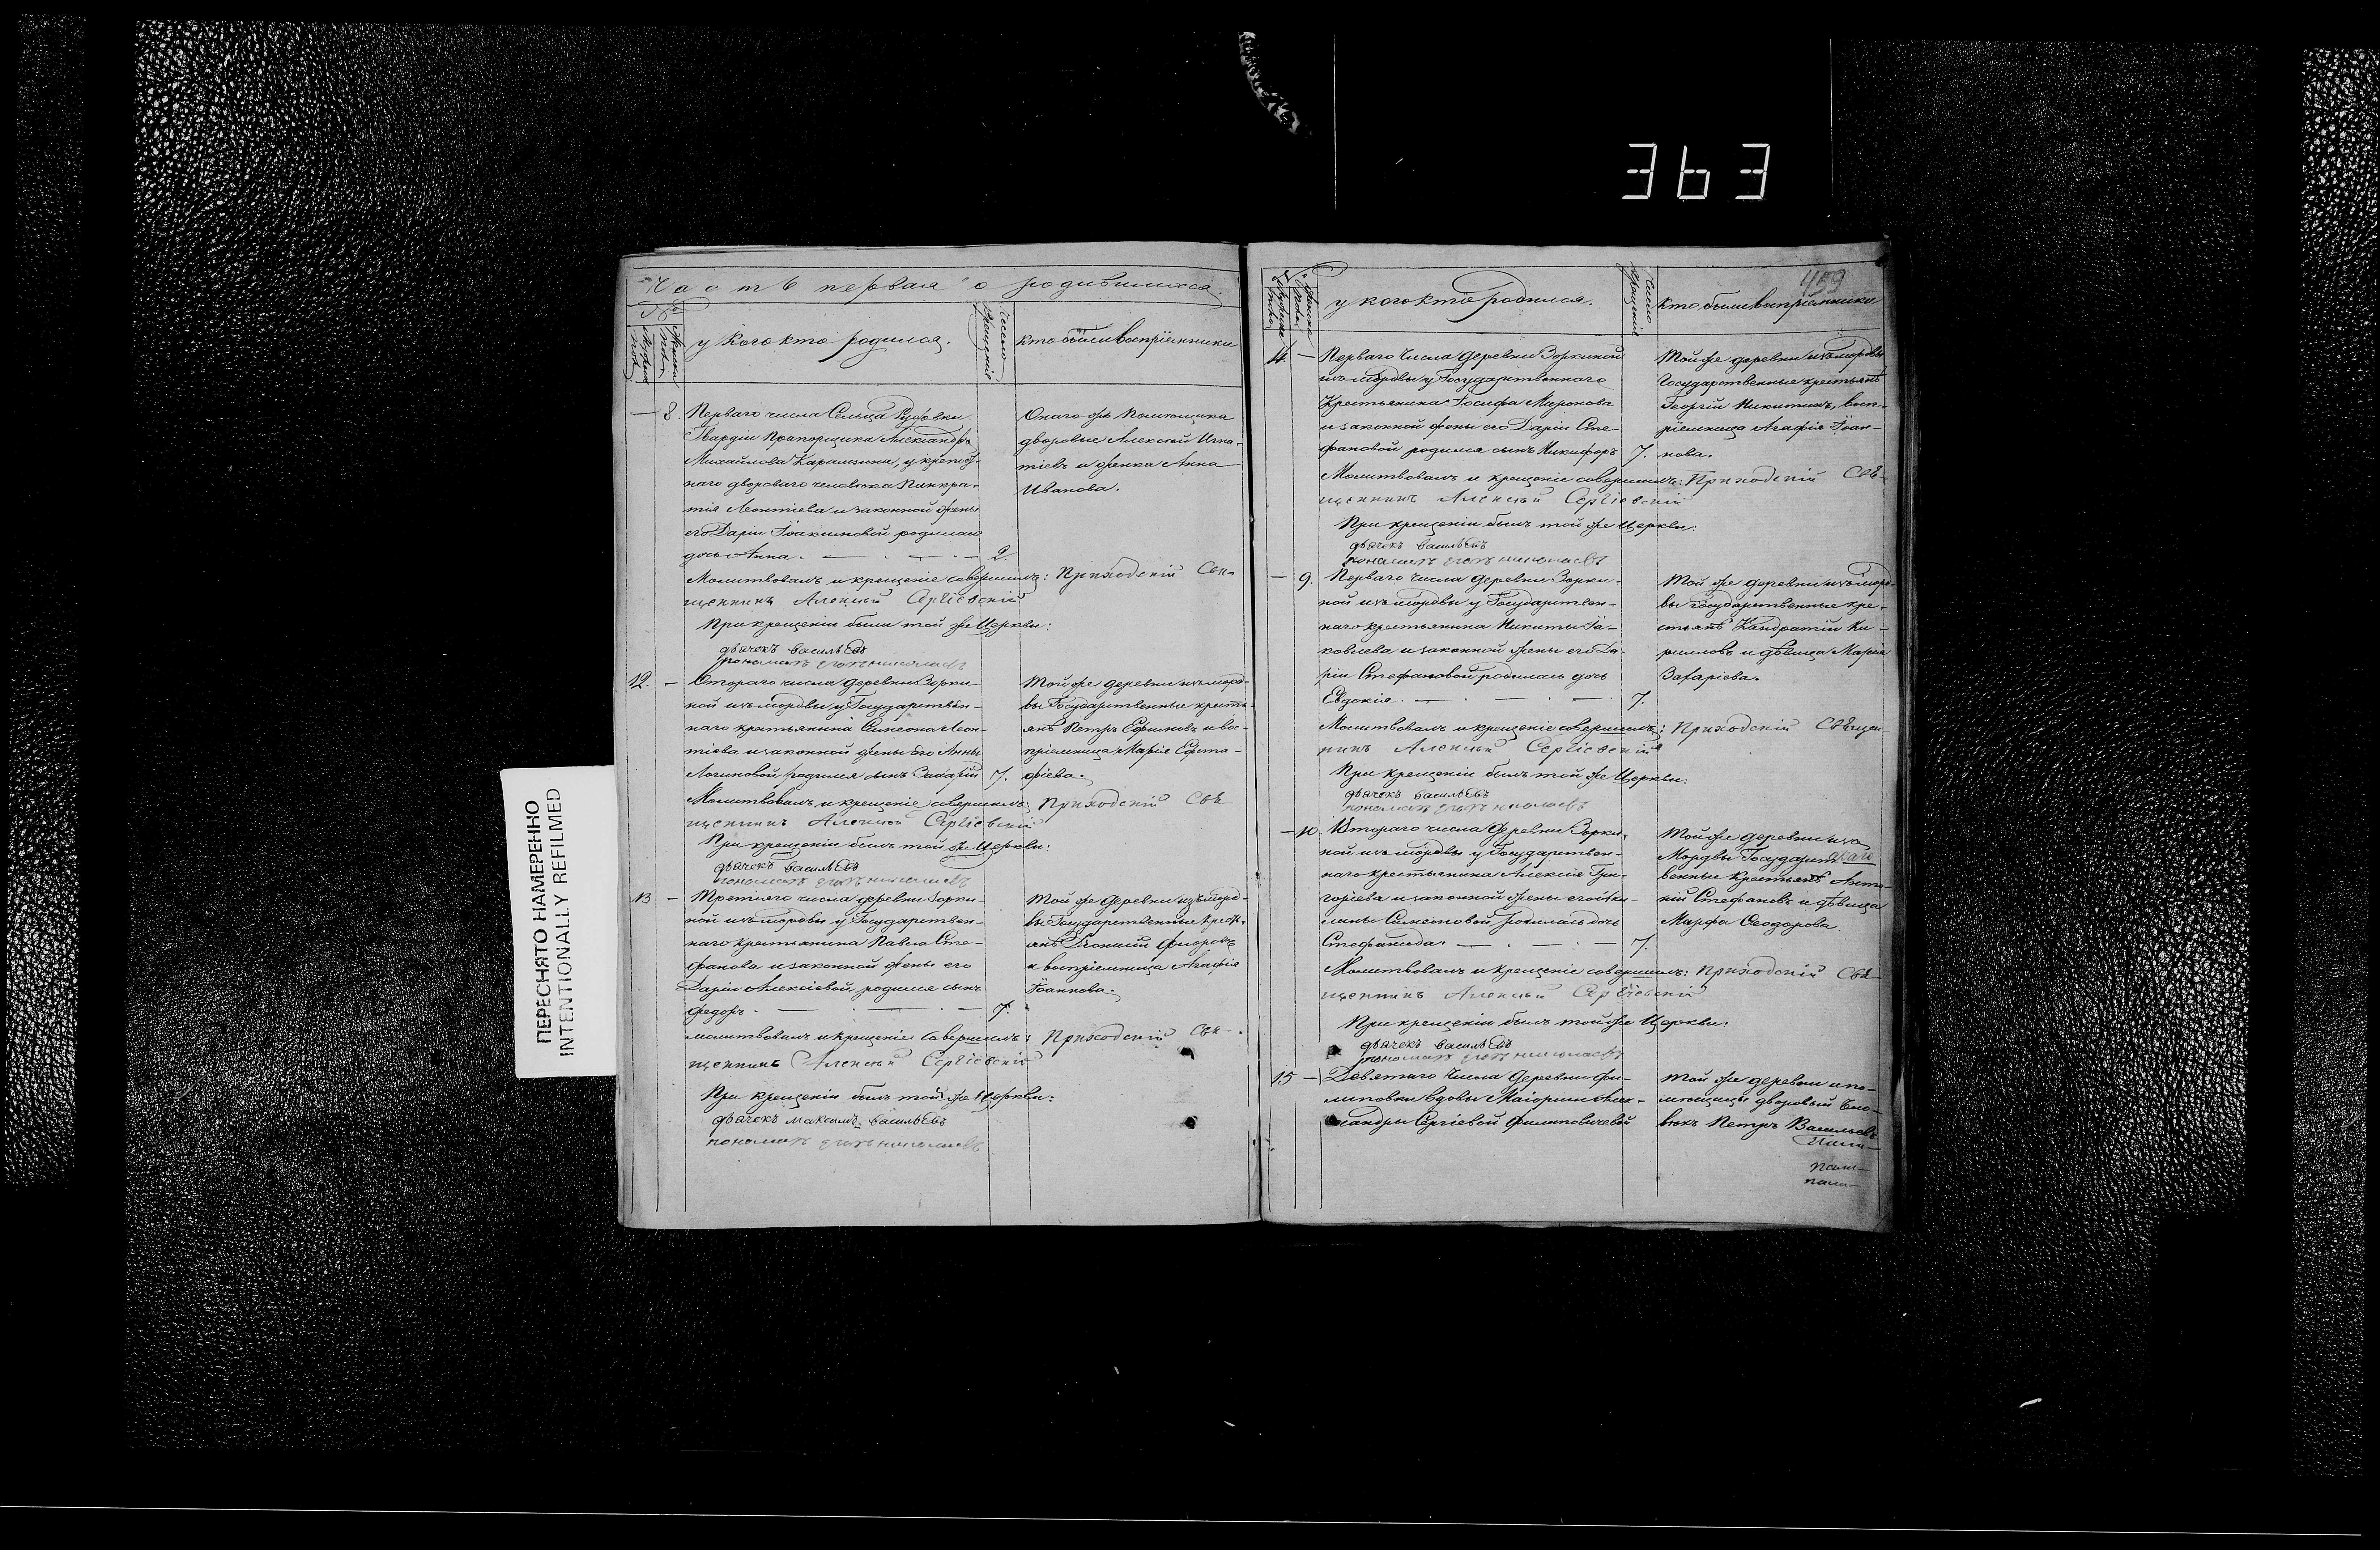 363
ПЕРЕСНЯТО НАМЕРЕННО
INTENTIONALLY REFILMED
Часть первая о родившихся.
№
Мужска пола
Женска пола
у кого кто родился.
Число крещенія
кто были воспріемники
— 8. Перваго числа Сельца
Гвардіи Прапорщика Александра
Михайлова Карамзина, у крепост-
наго двороваго человека Панкра-
тія Леонтіева и законной жены
его Даріи Іоакимовой родилась
дочь Анна. — 2
Онаго же помещика
дворовые Алексей Игна-
тіевъ и женка Анна
Иванова.
Молитвовалъ и крещеніе совершилъ: Приходскій Свя-
щенникъ Алексей Сергіевскій
При крещеніи были той же Церкви:
дьячекъ Васильевъ
пономарь Николаевъ
12. — Втораго числа деревни Зорки-
ной изъ мордвы у Государствен-
наго крестьянина Симеона Леон-
тіева и законной жены его Анны
Логиновой родился сынъ Захарій 7.
Той же деревни изъ морд-
вы Государственные кресть-
янъ Петръ Ефимовъ и вос-
пріемница Марія
Молитвовалъ и крещеніе совершилъ: Приходскій Свя-
щенникъ Алексей Сергіевскій
При крещеніи былъ той же Церкви:
дьячекъ Васильевъ
пономарь Николаевъ
13 — Третьяго числа деревни Зорки-
ной изъ мордвы у Государствен-
наго крестьянина Павла Сте-
фанова и законной жены его
Даріи Алексіевой, родился сынъ
Федоръ. — 7.
Той же деревни изъ морд-
вы Государственные крест-
янъ Діонисій Федоровъ
и воспріемница Агафія
Іоаннова.
молитвовалъ и крещеніе совершилъ: Приходскій Свя-
щенникъ Алексей Сергіевскій
При крещеніи былъ той же Церкви:
дьячекъ максимъ Васильевъ
пономарь Николаевъ
459
у кого кто родился.
Число крещенія
кто были воспріемники
14. — Перваго числа деревни Зоркиной
изъ мордвы у Государственнаго
Крестьянина Іосифа Миронова
и законной жены его Даріи Сте-
фановой родился сынъ Никифоръ 7.
Той же деревни изъ мордвы
Государственные крестьянъ
Георгій Никитинъ, восп-
ріемница Агафія Іоан-
нова.
Молитвовалъ и крещеніе совершилъ: Приходскій Свя-
щенникъ Алексей Сергіевскій
При крещеніи былъ той же Церкви:
дьячекъ Васильевъ
пономарь Николаевъ
— 9. Перваго числа деревни Зорки-
ной изъ мордвы у Государствен-
наго крестьянина Никиты Іа-
ковлева и законной жены его Да-
ріи Стефановой родилась дочь
Евдокія. — 7.
Той же деревни изъ морд-
вы государственные кре-
стьянъ Кандратій Ки-
рилловъ и девица Марія
Захаріева.
Молитвовалъ и крещеніе совершилъ: Приходскій Священ-
никъ Алексей Сергіевскій
При крещеніи былъ той же Церкви:
дьячекъ Васильевъ
пономарь Николаевъ
— 10. Втораго числа деревни Зорки-
ной изъ мордвы у Государствен-
наго крестьянина Алексія Гри-
горіева и законной жены его
Симеоновой родилась дочь
Стефанида. — 7.
Той же деревни изъ
Мордвы Государст-
венные крестьянъ
Стефановъ и девица
Марфа Феодорова.
Молитвовалъ и крещеніе совершилъ: Приходскій Свя-
щенникъ Алексей Сергіевскій
При крещеніи былъ той же Церкви:
дьячекъ Васильевъ
пономарь Николаевъ
15 — Девятаго числа деревни Фи-
липовки вдовы Маіорши Алек-
сандры Сергіевой Филиповичевой
той же деревни и по-
мещицы дворовый чело-
векъ Петръ Васильевъ